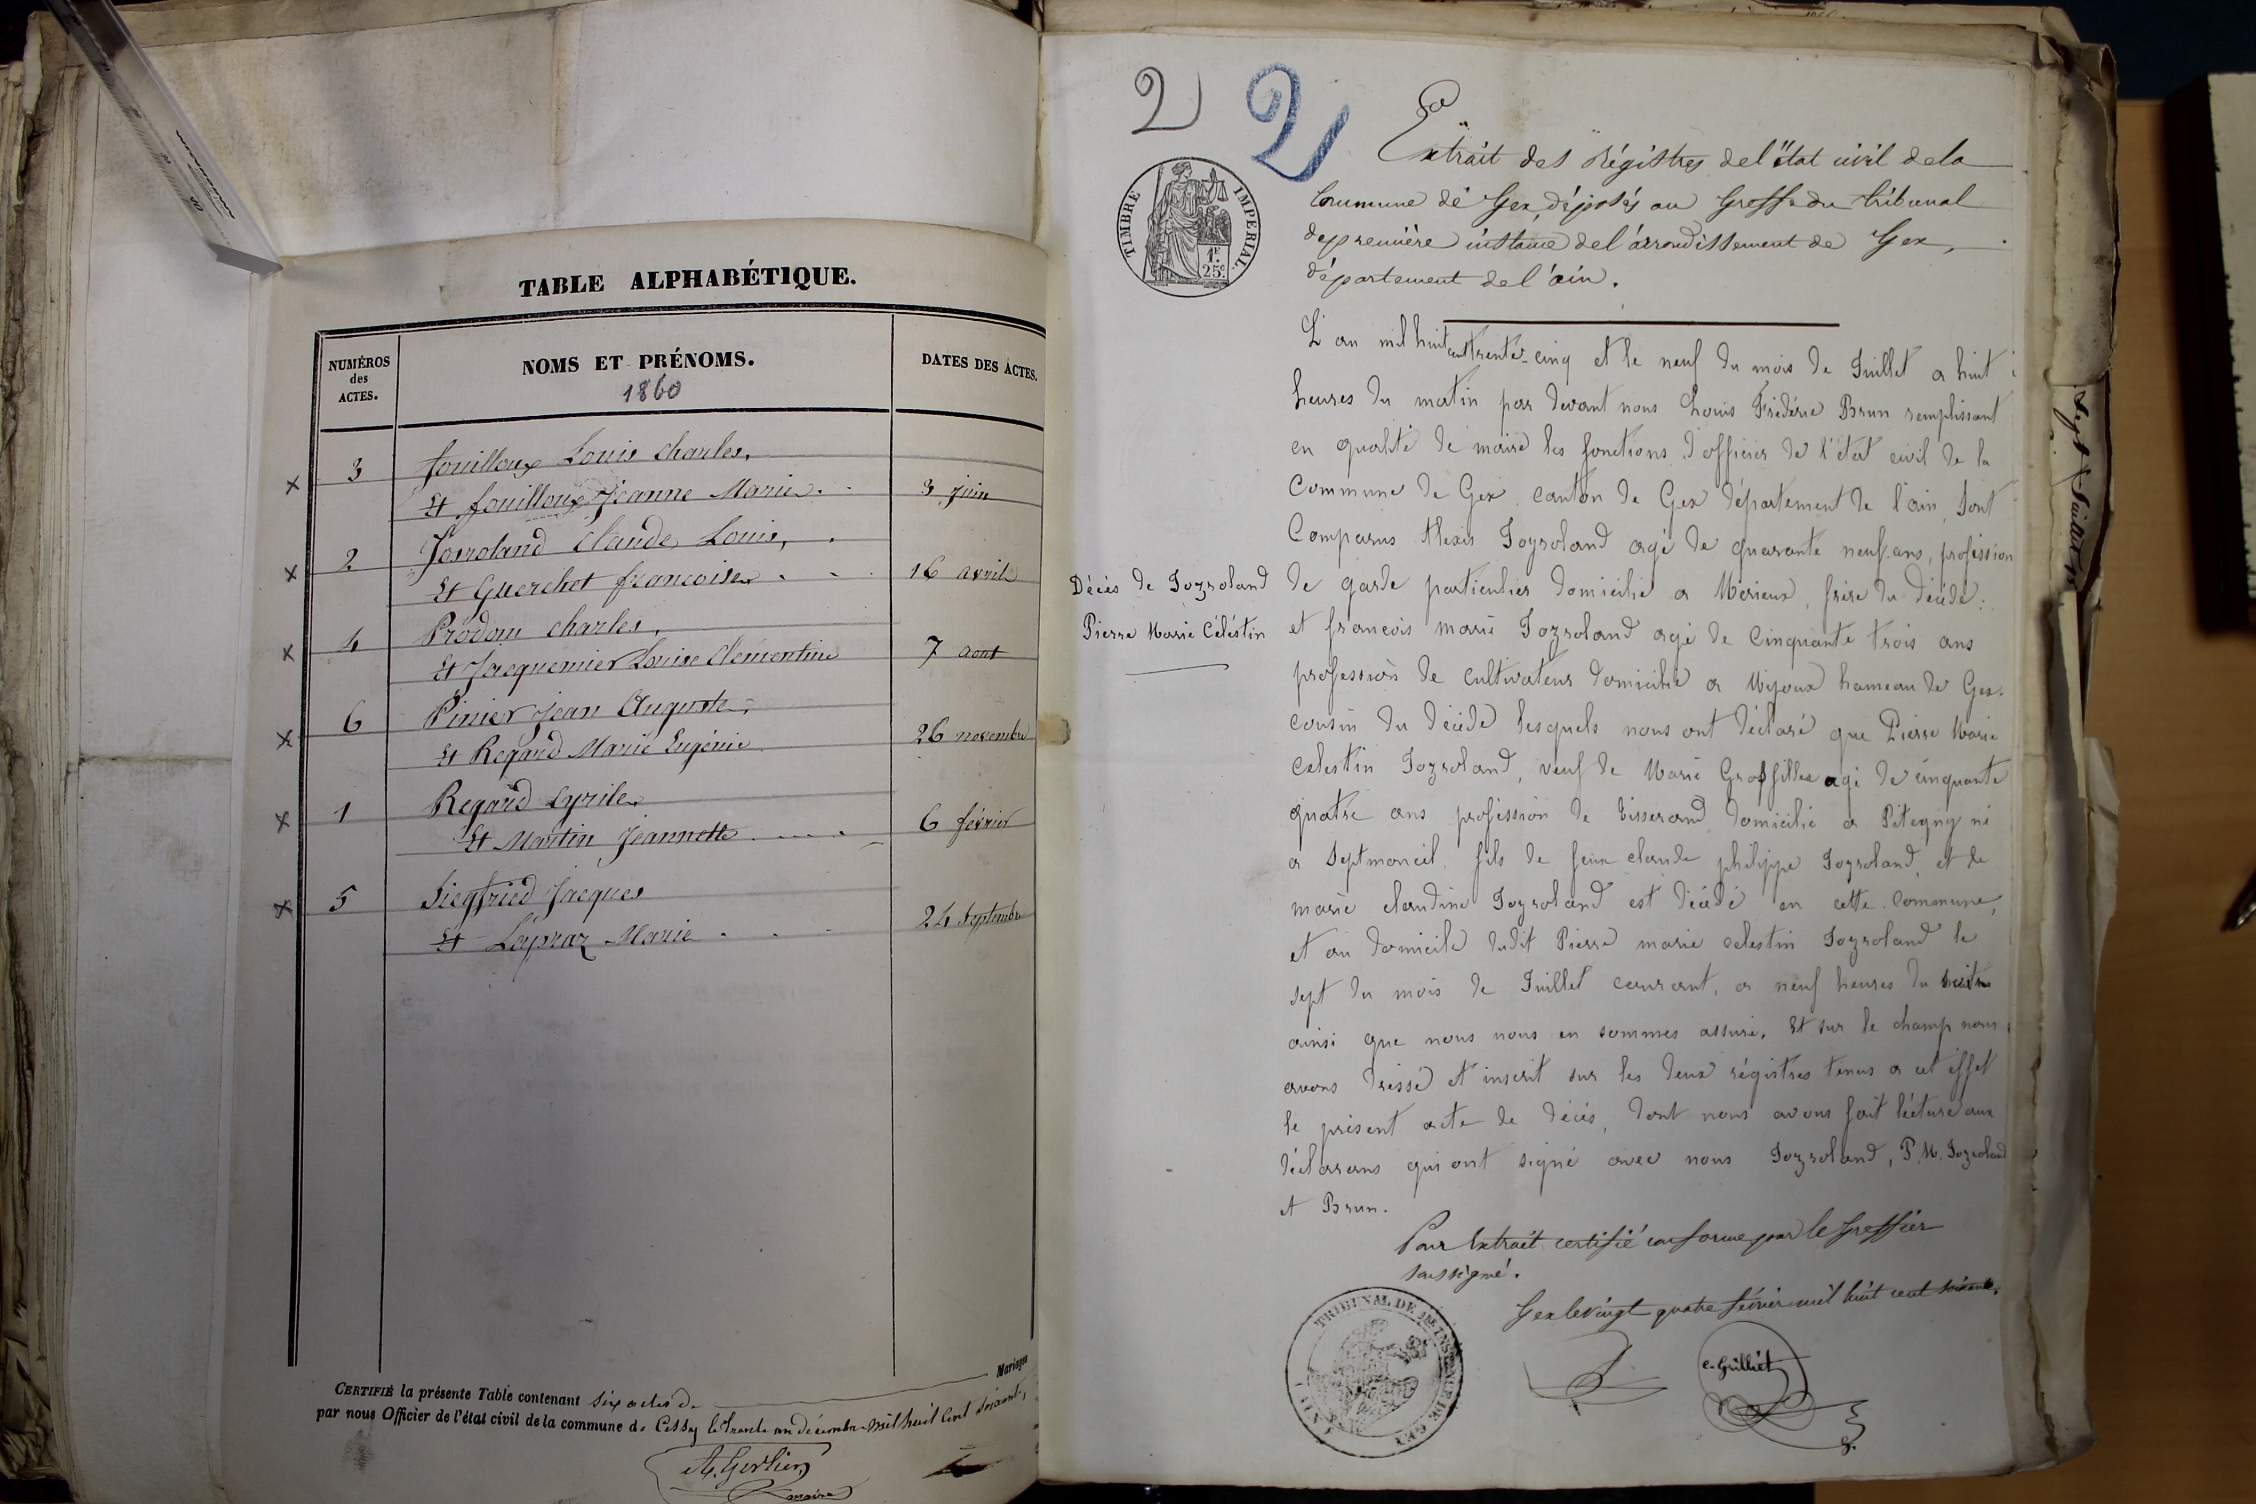 TABLE ALPHABÉTIQUE.
NUMÉROS des ACTES.
NOMS ET PRÉNOMS.
1860
DATES DES ACTES.
3 fouilloux Louis Charles,
Et fouilloux Jeanne Marie. 3 juin
2 Josroland Claude Louis,
Et Guerchet francoise 16 avril
4 Prodon Charles,
Et Jacquemier Louise Clémentine 7 aout
6 Pinier Jean Auguste,
Et Regard Marie Eugénie 26 novembre
1 Regard Cyrile,
Et Martin Jeannette 6 février
5 Siegfried Jacques
Et Lapraz Marie 24 Septembre
CERTIFIÉ la présente Table contenant six actes de Mariages
par nous Officier de l'état civil de la commune de Cessy le trente un décembre mil huit cent soixante,
Gerlier
maire
2 2
TIMBRE IMPERIAL.
1F.
25c.
Extrait des régistres de l'état civil de la
Commune de Gex, déposés au Greffe du tribunal
de première instance de l'arrondissement de Gex,
département de l'ain.
L'an mil huit cent trente-cinq et le neuf du mois de Juillet a huit
heures du matin par devant nous Louis Frédéric Brun remplissant
en qualité de maire les fonctions d'officier de l'état civil de la
Commune de Gex canton de Gex département de l'ain, Sont
Comparus Alexis Jozroland agé de quarante neuf ans, profession
de garde particulier domicilié a Mérieux, frère du décédé:
et francois marie Jozroland agé de Cinquante trois ans
profession de cultivateur domicilié a Mijoux hameau de Gex.
cousin du décédé lesquels nous ont déclaré que Pierre Marie
Celestin Jozroland, veuf de Marie Grosfillex agé de cinquante
quatre ans profession de tisserand domicilié a Pitegny né
a Septmoncel, fils de feux claude philippe Jozroland, et de
marie claudine Jozroland est décédé en cette commune,
et au domicile dudit Pierre marie celestin Jozroland le
sept du mois de Juillet courant, a neuf heures du
ainsi que nous nous en sommes assuré. Et sur le champ nous
avons dressé et inscrit sur les deux régistres tenus a cet effet
le présent acte de décés, dont nous avons fait lécture aux
déclarans qui ont signé avec nous Jozroland, P. M. Jozroland
et Brun.
Décès de Jozroland
Pierre Marie Céléstin
Pour Extrait certifié conforme par le Greffier
soussigné.
Gex le vingt quatre février mil huit cent soixante.
TRIBUNAL DE 1ERE INSTANCE DE GEX
e. Grilliet